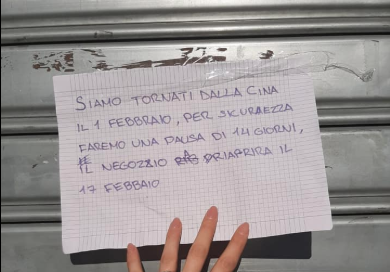 SIAMO TORNATI DALLA CINA
IL 1 FEBBRAIO, PER SICUREZZA
FAREMO UNA PAUSA DI 14 GIORNI,
IL NEGOZIO RIAPRIRA IL
17 FEBBAIO